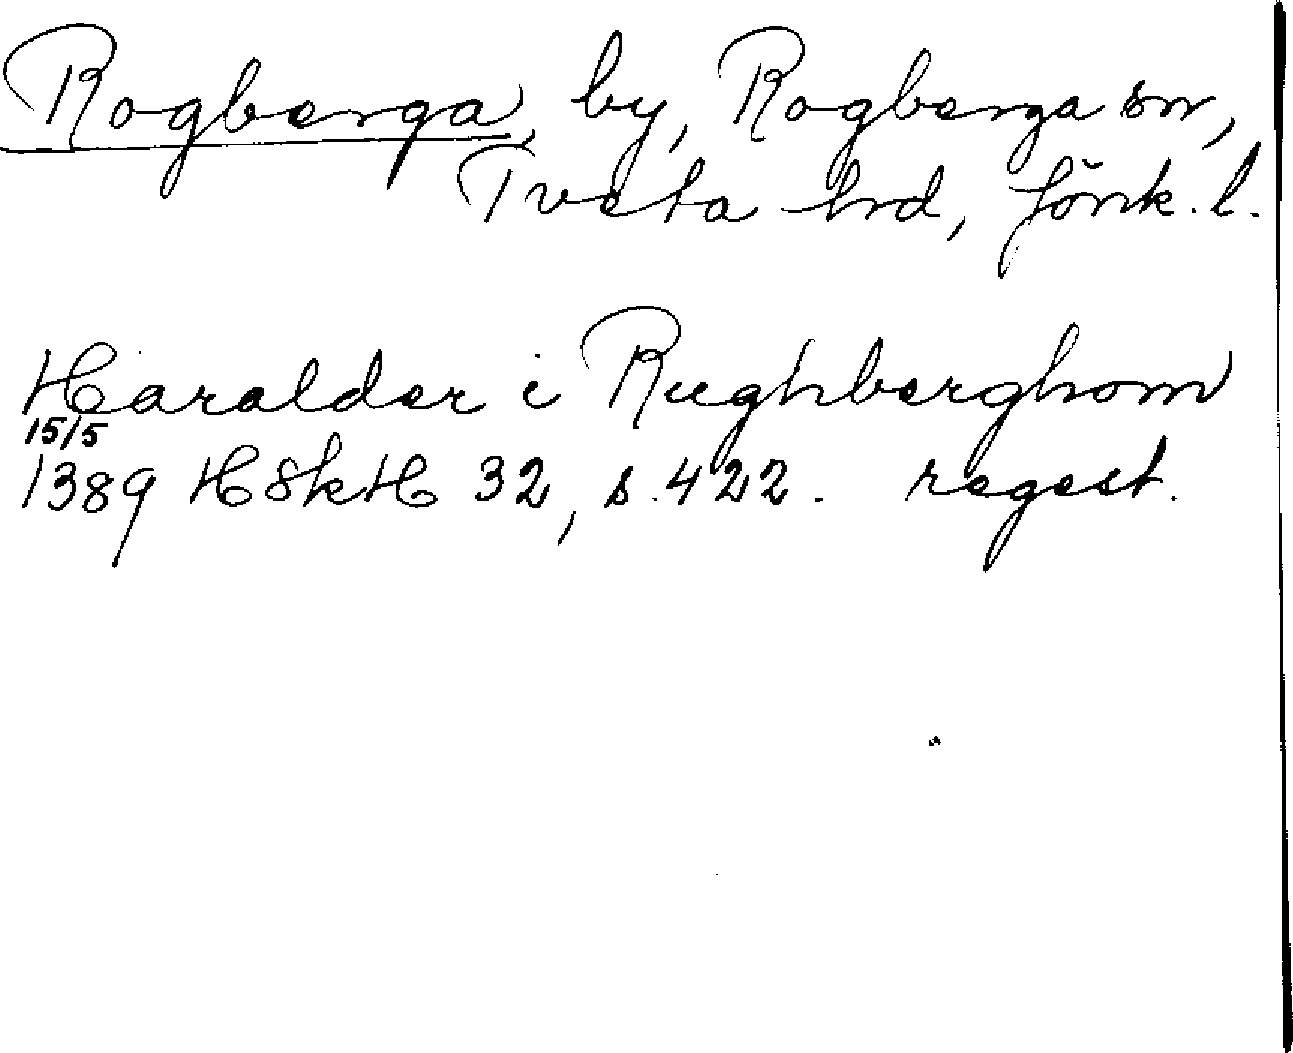 Rogberga, by, Rogberga sn,
Tveta hrd, Jönk. l.
Haralder i Rughberghom
15/5
1389 HSkH 32, s. 422. regest.